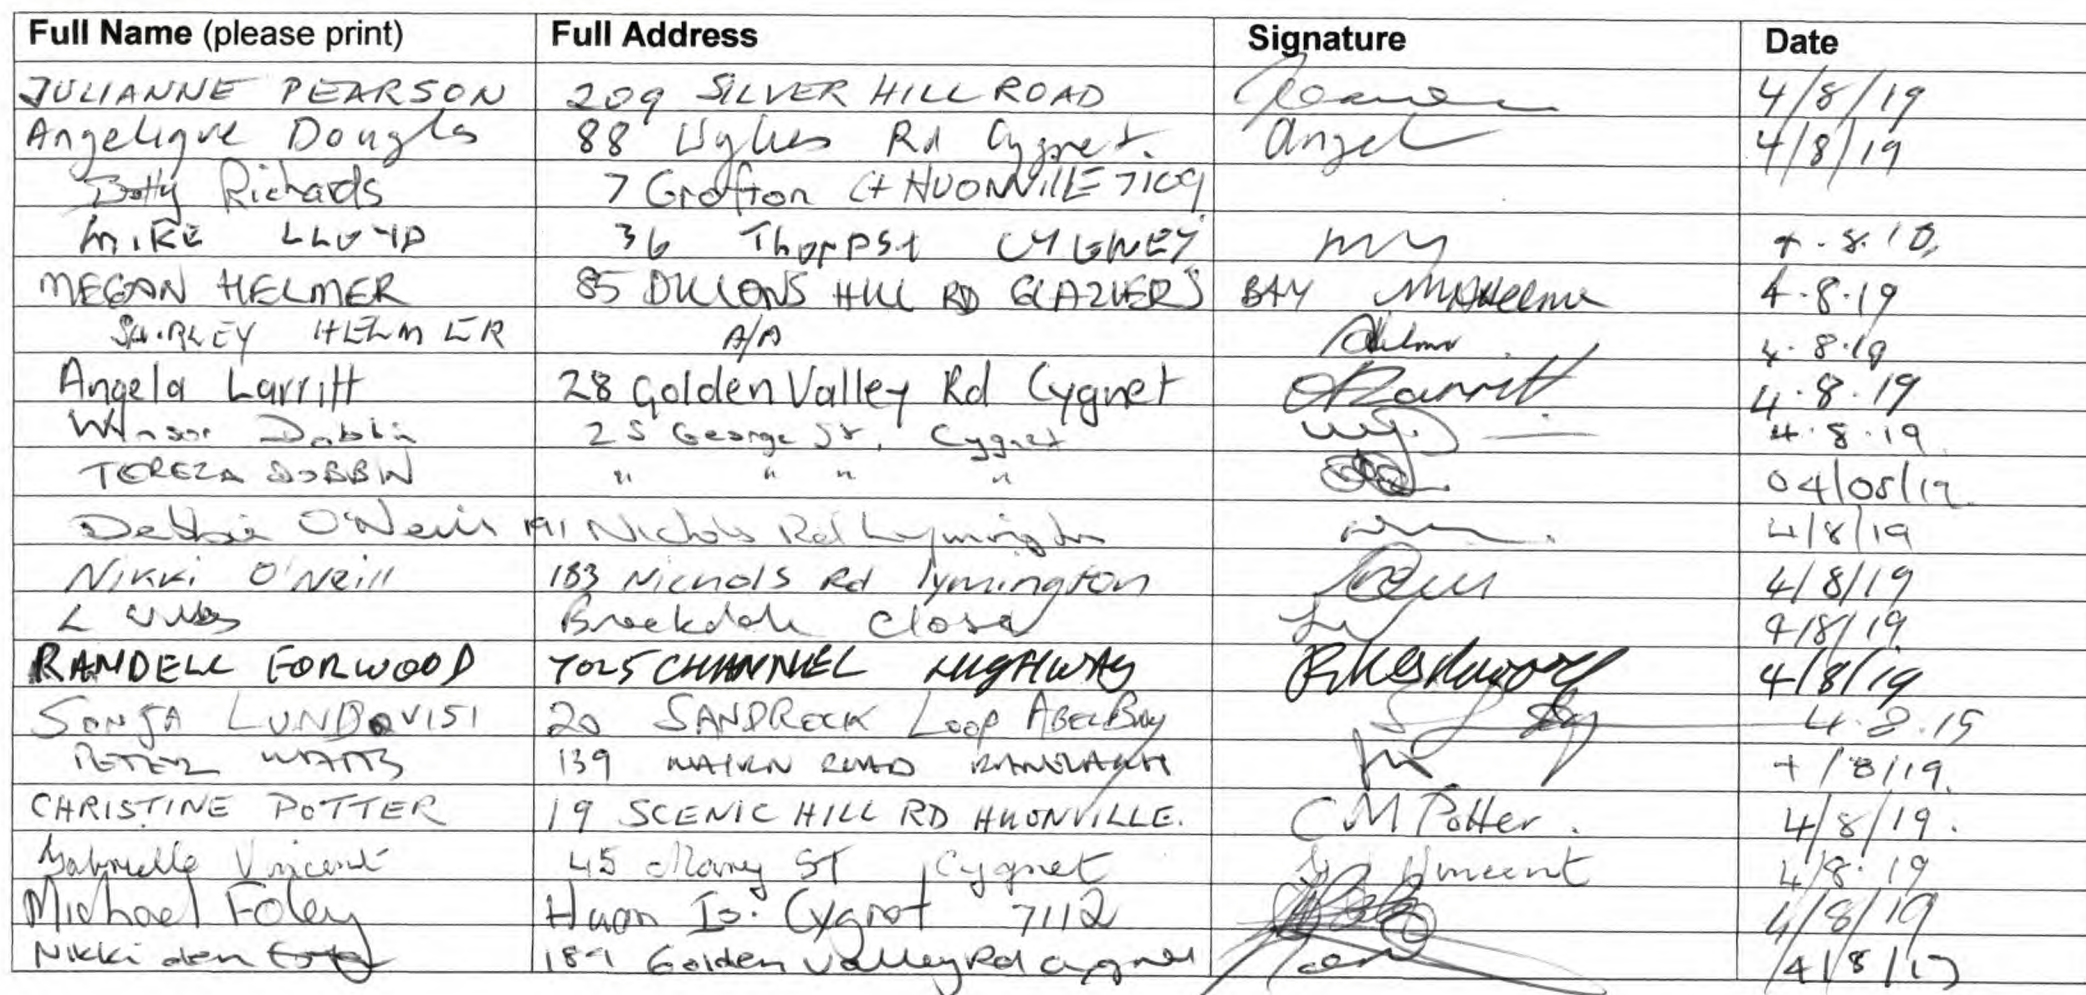 Full Name (please print) Full Address Signature Date
JULIANNE PEARSON 209 SILVER HILL ROAD 4/8/19
Angelique Dougls 88 Wykes Rd Cygnet. Angel 4/8/19
Betty Richards 7 Grafton Ct HUONVILLE 7109
MIKE LLOYD 36 CYGNEY 8
MEGAN HELMER 85 DILLONS HILL RD GLAZIERS BAY 4.8.19
SHIRLEY HELMER A/A 4.8.19
Angela Larritt 28 Golden Valley Rd Cygnet 4.8.19
Winsor Dobbin 25 George St, Cygnet 4.8.19
TEREZA DOBBIN " " " " 04/08/19
Debbie O'Neill 191 Nichols Rd Lymington 4/8/19
Nikki O'Neill 183 Nichols Rd lymington 4/8/19
L Close 4/8/19
RANDELL FORWOOD 7025 CHANNEL HIGHWAY 4/8/19
SONJA 20 Loop 4.8.19
PETER WATTS 139 ROAD 4/8/19.
CHRISTINE POTTER 19 SCENIC HILL RD HUONVILLE. C M Potter. 4/8/19.
Gabrielle Vincent 45 Mary ST Cygnet G Vincent 4/8.19
Michael Foley Huon Is. Cygnet 7112 4/8/19
Nikki den 189 Golden Valley Rd Cygnet 4/8/19